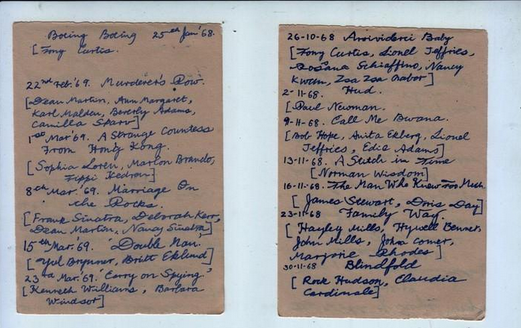 Boeing Boeing 25th Jan '68.
[Tony Curtis.
22nd Feb. '69. Murderer's Row.
[Dean Martin, Ann Margaret,
Karl Malden, Beverly Adams,
Camilla Sparv]
1st Mar '69. A Strange Countess
From Hong Kong.
[Sophia Loren, Marlon Brando,
Tippi Hedren]
8th Mar. '69. Marriage On
the Rocks.
[Frank Sinatra, Deborah Kerr,
Dean Martin, Nancy Sinatra]
15th Mar. '69. Double Man.
[Yul Brynner, Britt Eklund]
23rd Mar. '69. Carry on Spying
[Kenneth Williams, Barbara
Windsor]
26-10-68 Arrividerci Baby
[Tony Curtis, Lionel Jeffries,
Rosana Schiaffino, Nancy
Kwan, Zsa Zsa Gabor]
2-11-68. Hud.
[Paul Newman.
9-11-68. Call Me Bwana.
[Bob Hope, Anita Ekberg, Lionel
Jeffries, Edie Adams]
13-11-68. A Stitch in Time
[Norman Wisdom]
16-11-68. The Man Who Knew Too Much
[James Stewart, Doris Day]
23-11-68 Family Way.
[Hayley Mills, Hywell Bennet,
John Mills, John Comer,
Marjorie Rhodes]
30-11-68 Blindfold
[Rock Hudson, Claudia
Cardinale]